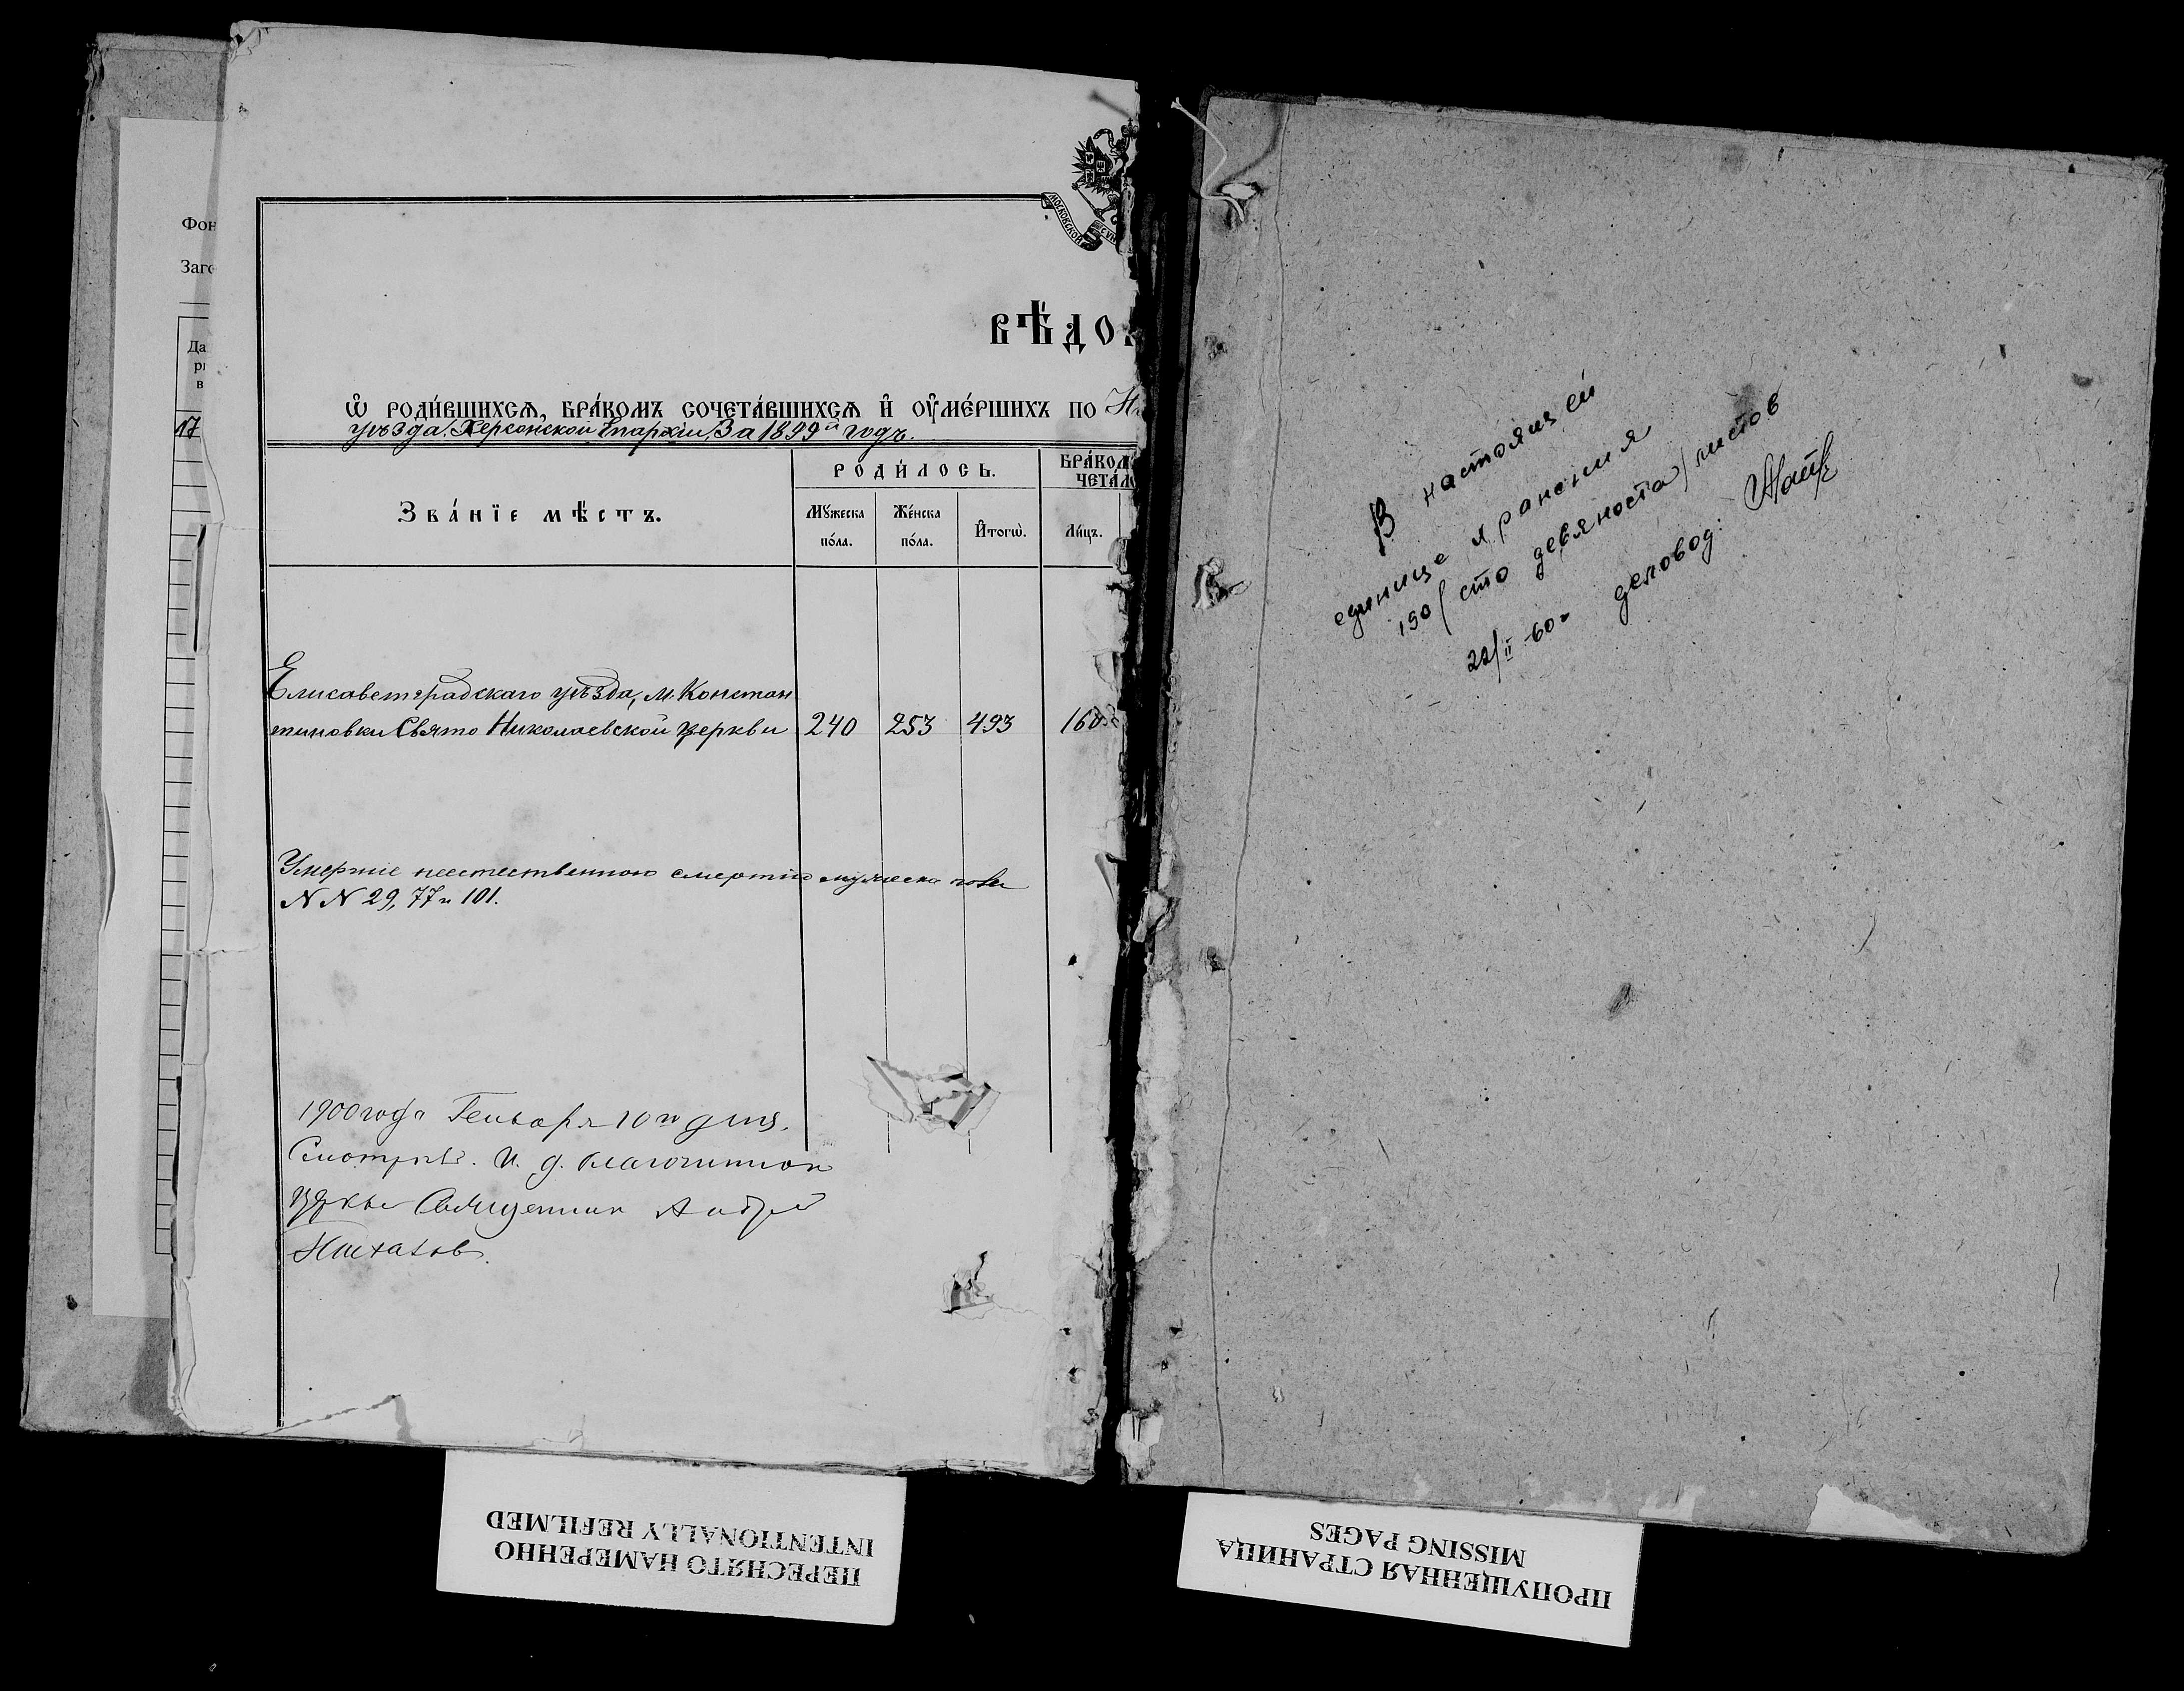 Фон
Заго
Да
ри
в
17
МОСКОВСКОЙ СѴН
ВѢ́ДО
Ѽ РОДИ́ВШИХСѦ, БРА́КОМЪ СОЧЕТА́ВШИХСѦ И҆ ОУ҆МЕ́РШИХЪ ПО
уѣзда, Херсонской Епархіи, За 1899й годъ.
Зва́нїе мѣ́стъ.
РОДИ́ЛОСЬ.
Мꙋ́жеска по́ла.
Же́нска по́ла.
И҆тогѡ̀.
БРА́КОМ
ЧЕТА́ЛО
Ли́цъ.
Елисаветградскаго уѣзда, м. Констан
тиновки Свято Николаевской церкви 240 253 493 160
Умершіе неестественною смертію мужеска пола
N N 29, 77 и 101.
1900 года Генваря 10 го дня.
Смотрѣлъ. И. д. благочиннаго
Священник Андрей
В настоящей
единице хранения
190 (сто девяноста) листов
22/II-60г деловод:
ПЕРЕСНЯТО НАМЕРЕННО
INTENTIONALLY REFILMED
ПРОПУЩЕННАЯ СТРАНИЦА
MISSING PAGES